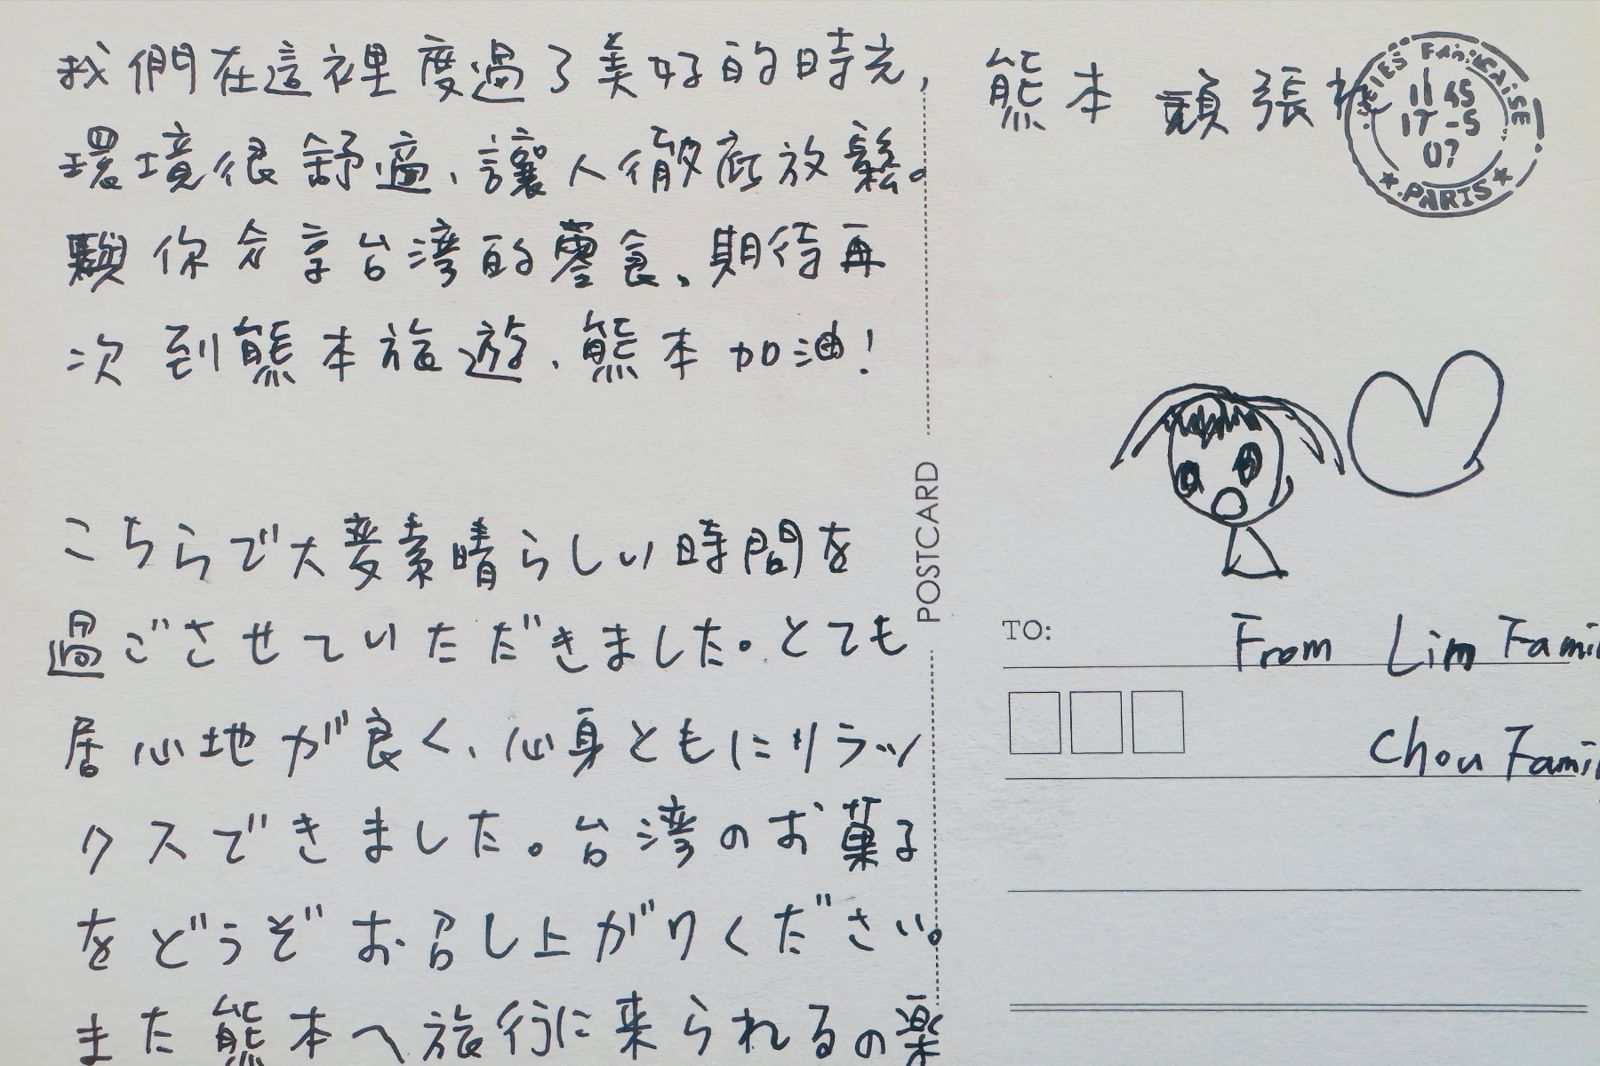 我們在這裡度過了美好的時光,
環境很舒適、讓人徹底放鬆。
與你分享台湾的零食、期待再
次到熊本旅遊、熊本加油!
こちらで大変素晴らしい時間を
過ごさせていただきました。とても
居心地が良く、心身ともにリラッ
クスできました。台湾のお菓子
をどうぞお召し上がりください。
また熊本へ旅行に来られるの楽
POSTCARD
熊本 頑張
11 45
17 -5
07
PARIS
TO:
From Lim Famil
Chou Famil